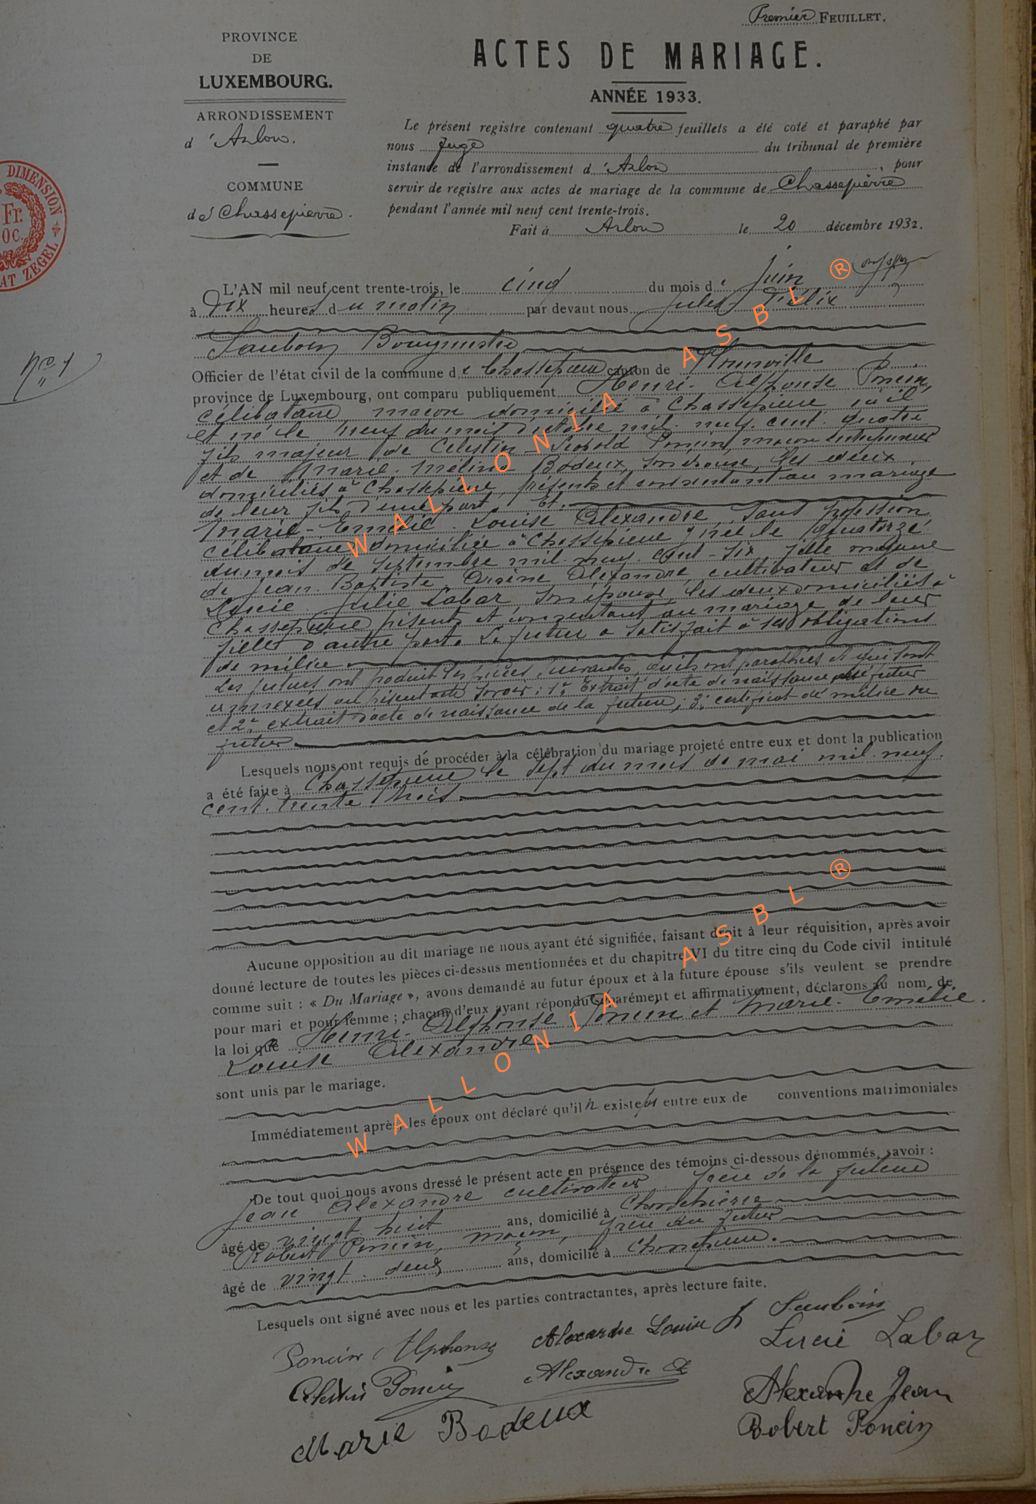 Premier FEUILLET.
PROVINCE
DE
LUXEMBOURG.
ARRONDISSEMENT
d'Arlon.
COMMUNE
de Chassepierre.
ACTES DE MARIAGE.
ANNÉE 1933.
Le présent registre contenant quatre feuillets a été coté et paraphé par
nous Juge du tribunal de première
instance de l'arrondissement d'Arlon, pour
servir de registre aux actes de mariage de la commune de Chassepierre
pendant l'année mil neuf cent trente-trois.
Fait à Arlon le 20 décembre 1932.
DIMENSION
Fr.
OC.
AT ZEGEL
No 1
L'AN mil neuf cent trente-trois, le cinq du mois de Juin
à Dix heures du matin par devant nous Jules Félix
Sauboin Bourgmestre
Officier de l'état civil de la commune de Chassepierre canton de Florenville
province de Luxembourg, ont comparu publiquement Henri-Alphonse Poncin,
célibataire maçon domicilié à Chassepierre où il
est né le neuf du mois d'octobre mil neuf cent quatre
fils majeur de Célestin Poncin, maçon entrepreneur
et de Marie Bodeux, son épouse, les deux
domiciliés à Chassepierre, présents et consentant au mariage
de leur fils d'une part, Et
Marie-Emélie Louise Alexandre sans profession
célibataire domiciliée à Chassepierre née le quatorze
du mois de septembre mil neuf cent six fille majeure
de Jean Baptiste Alexandre, cultivateur et de
Lucie Julie Labar, son épouse, les deux domiciliés à
Chassepierre présents et consentant au mariage de leur
fille d'autre part. Le futur a satisfait à ses obligations
de milice
Les futurs ont produit les pièces suivantes qu'ils ont paraphées et qui sont
annexées au présent acte savoir: 1° Extrait d'acte de naissance du futur
et 2° extrait d'acte de naissance de la future; 3° certificat de milice du
futur
Lesquels nous ont requis de procéder à la célébration du mariage projeté entre eux et dont la publication
a été faite à Chassepierre le sept du mois de mai mil neuf
cent trente trois
Aucune opposition au dit mariage ne nous ayant été signifiée, faisant droit à leur réquisition, après avoir
donné lecture de toutes les pièces ci-dessus mentionnées et du chapitre VI du titre cinq du Code civil intitulé
comme suit : « Du Mariage », avons demandé au futur époux et à la future épouse s'ils veulent se prendre
pour mari et pour femme ; chacun d'eux ayant répondu séparément et affirmativement, déclarons au nom de
la loi que Henri-Alphonse Poncin et Marie-Emélie
Louise Alexandre
sont unis par le mariage.
Immédiatement après, les époux ont déclaré qu'il n'existe pas entre eux de conventions matrimoniales
De tout quoi nous avons dressé le présent acte en présence des témoins ci-dessous dénommés, savoir :
Jean Alexandre cultivateur frère de la future
âgé de vingt huit ans, domicilié à Chassepierre
Robert Poncin, maçon, frère du futur
âgé de vingt-deux ans, domicilié à Chassepierre.
Lesquels ont signé avec nous et les parties contractantes, après lecture faite.
Poncin Alphonse Alexandre Louise J Sauboin
Célestin Poncin Alexandre Lucie Labar
Marie Bodeux Alexandre Jean
Robert Poncin
WALLONIA ASBL ®
WALLONIA ASBL ®